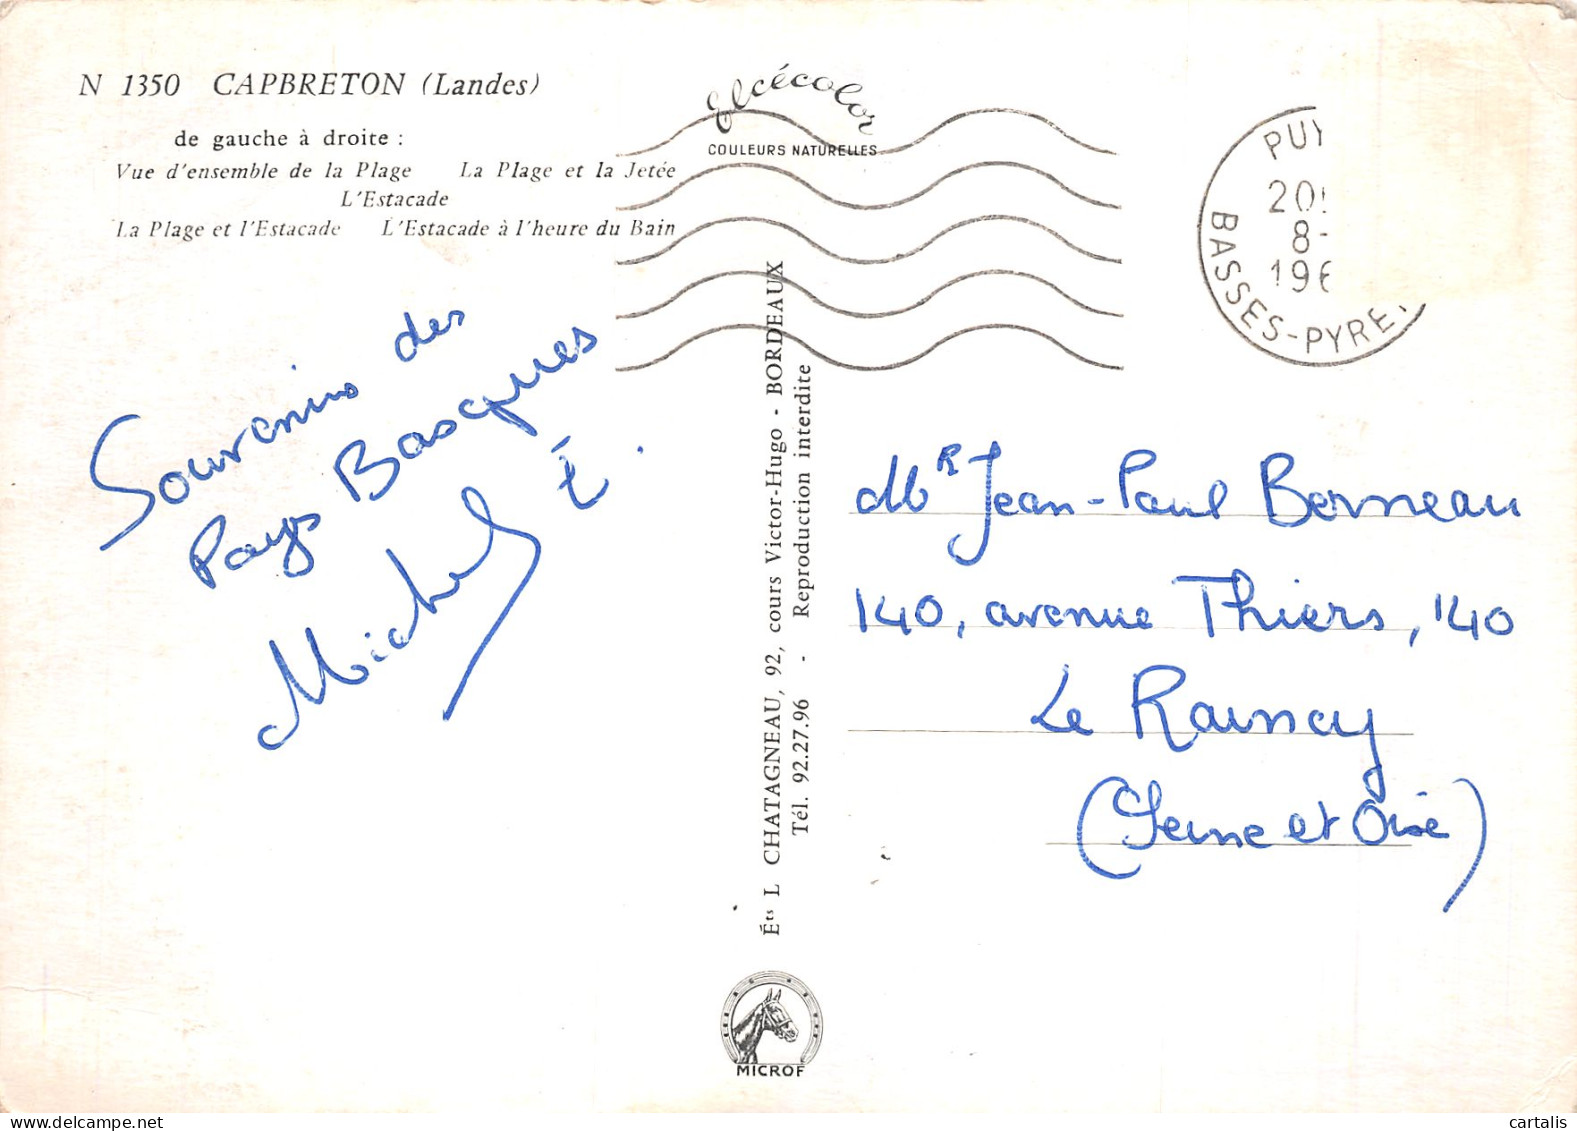 N 1350 CAPBRETON (Landes)
de gauche à droite :
Vue d'ensemble de la Plage La Plage et la Jetée
L'Estacade
La Plage et l'Estacade L'Estacade à l'heure du Bain
elcécolor
COULEURS NATURELLES
PUY
20
8-
196
BASSES-PYRE
Souvenirs des
Pays Basques
Michel É.
Éts L CHATAGNEAU, 92, cours Victor-Hugo - BORDEAUX
Tél. 92.27.96 - Reproduction interdite
MR Jean-Paul Borneau
140, avenue Thiers, 140
Le Raincy
(Seine et Oise)
MICROF
cartalis